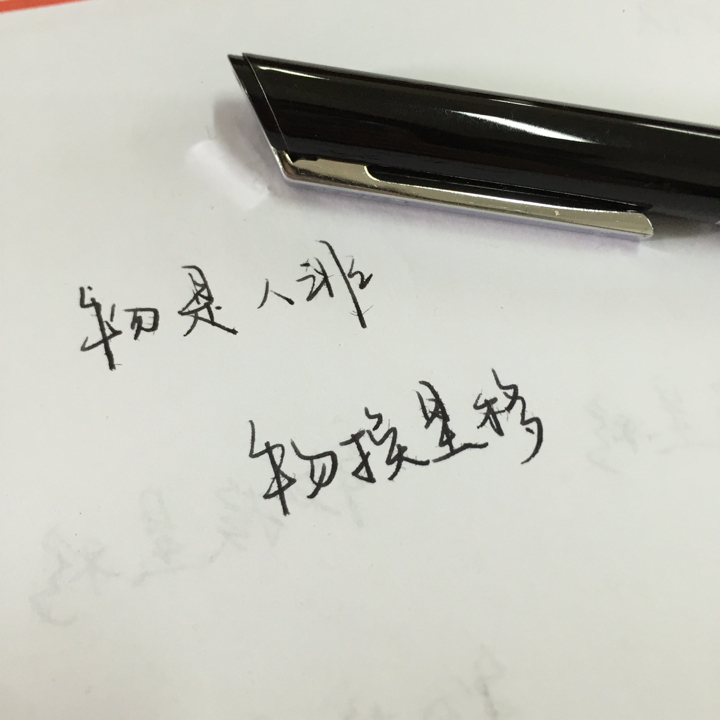 物是人非
物换星移